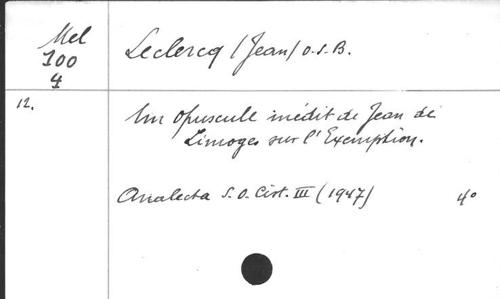 Mel
100
4
Leclercq (Jean) O.S.B.
12.
Un opuscule inédit de Jean de
Limoges sur l'Exemption.
Analecta S.O.Cist. III (1947) 4º